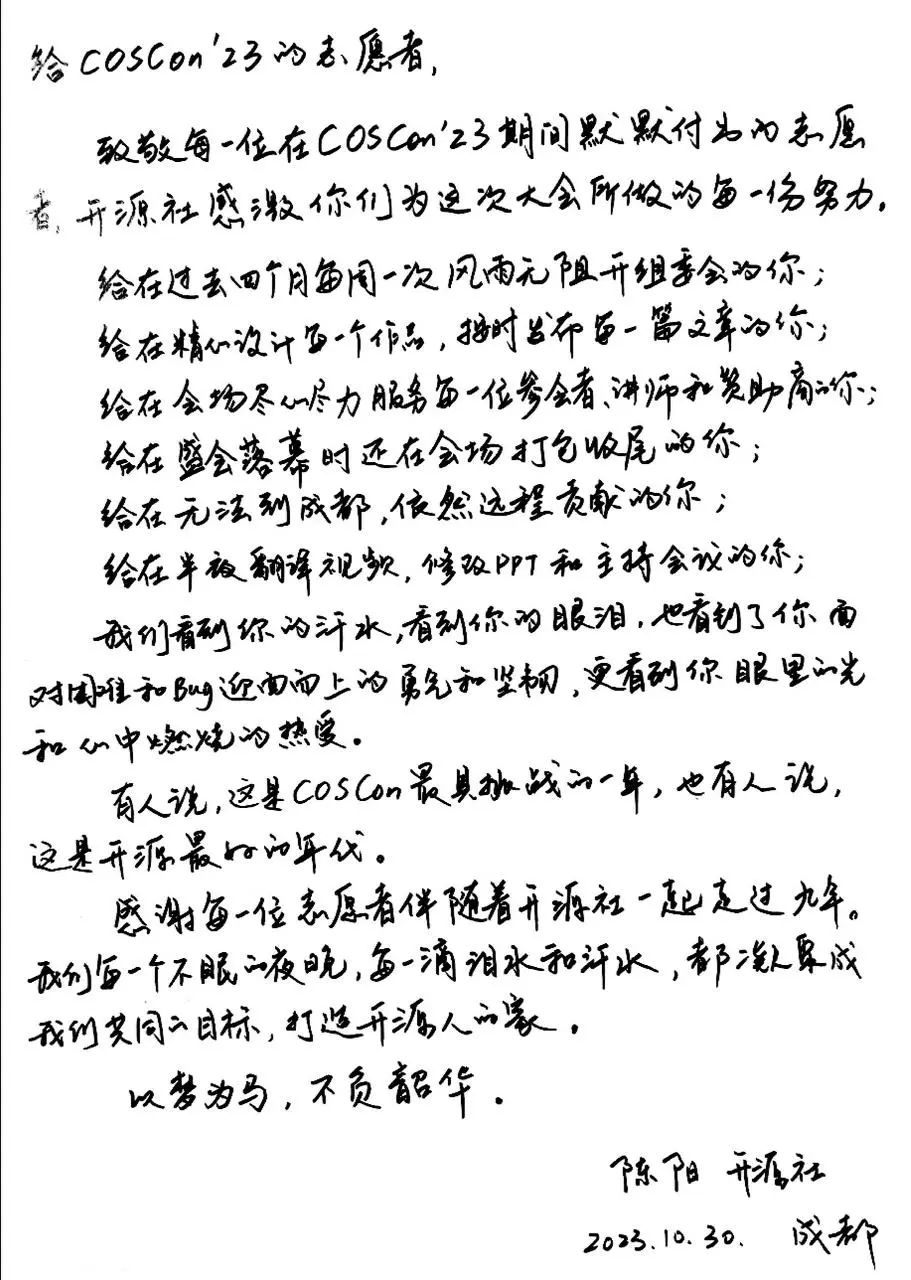 给COSCon'23的志愿者,
致敬每一位在COSCon'23期间默默付出的志愿
者,开源社感激你们为这次大会所做的每一份努力.
给在过去四个月每周一次风雨无阻开组委会的你;
给在精心设计每一个作品,按时发布每一篇文章的你;
给在会场尽心尽力服务每一位参会者、讲师和赞助商的你;
给在盛会落幕时还在会场打包收尾的你;
给在无法到成都,依然远程贡献的你;
给在半夜翻译视频,修改PPT和主持会议的你;
我们看到你的汗水,看到你的眼泪,也看到了你面
对困难和Bug迎面而上的勇气和坚韧,更看到你眼里的光
和心中燃烧的热爱。
有人说,这是COSCon最具挑战的一年,也有人说,
这是开源最好的年代。
感谢每一位志愿者伴随着开源社一起走过九年。
我们每一个不眠的夜晚,每一滴泪水和汗水,都凝聚成
我们共同的目标,打造开源人的家。
以梦为马,不负韶华。
陈阳 开源社
2023.10.30. 成都